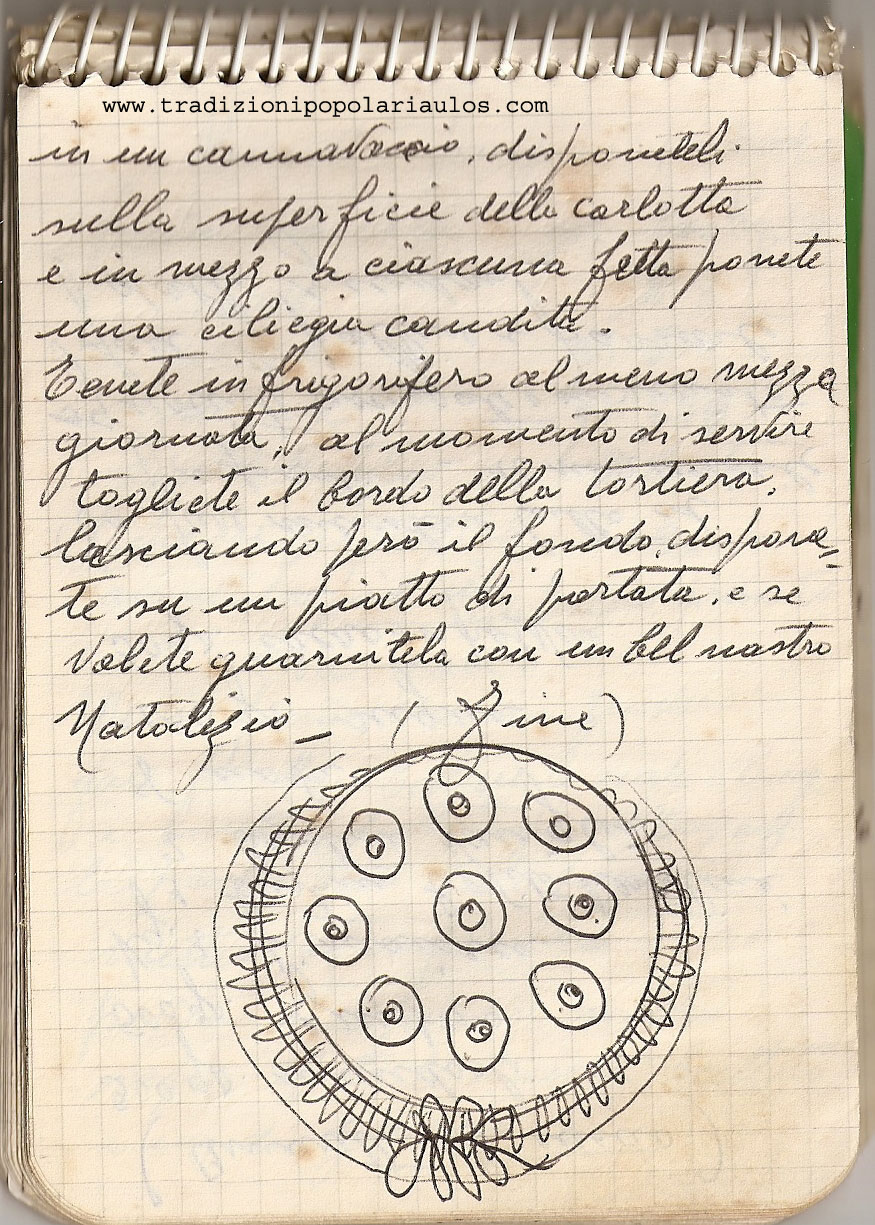 www.tradizionipopolariaulos.com
in un cannavaccio, disponeteli
sulla superficie della carlotta
e in mezzo a ciascuna fetta ponete
una ciliegia candita.
Tenete in frigorifero al meno mezza
giornata, al momento di servire
togliete il bordo della tortiera,
lasciando però il fondo, dispone-
te su un piatto di portata, e se
volete guarnitela con un bel nastro
Natalizio _ (Fine)